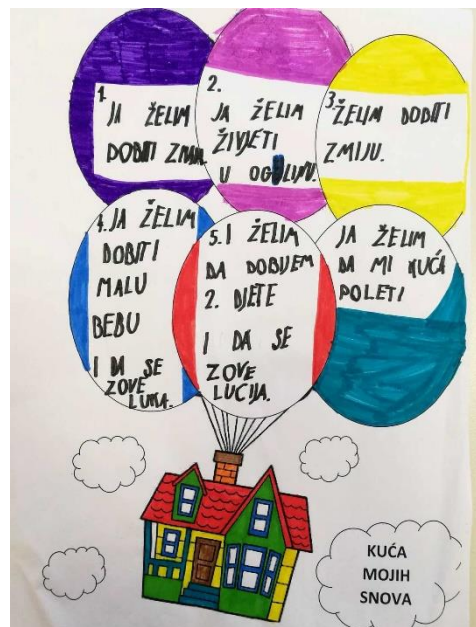 1.
JA ŽELIM
DOBITI ZMAJA.
2.
JA ŽELIM
ŽIVJETI
U OGULINU.
3. ŽELIM DOBITI
ZMIJU.
4. JA ŽELIM
DOBITI
MALU
BEBU
I DA SE
ZOVE
LUKA.
5. I ŽELIM
DA DOBIJEM
2. DJETE
I DA SE
ZOVE
LUCIJA.
JA ŽELIM
DA MI KUĆA
POLETI
KUĆA
MOJIH
SNOVA